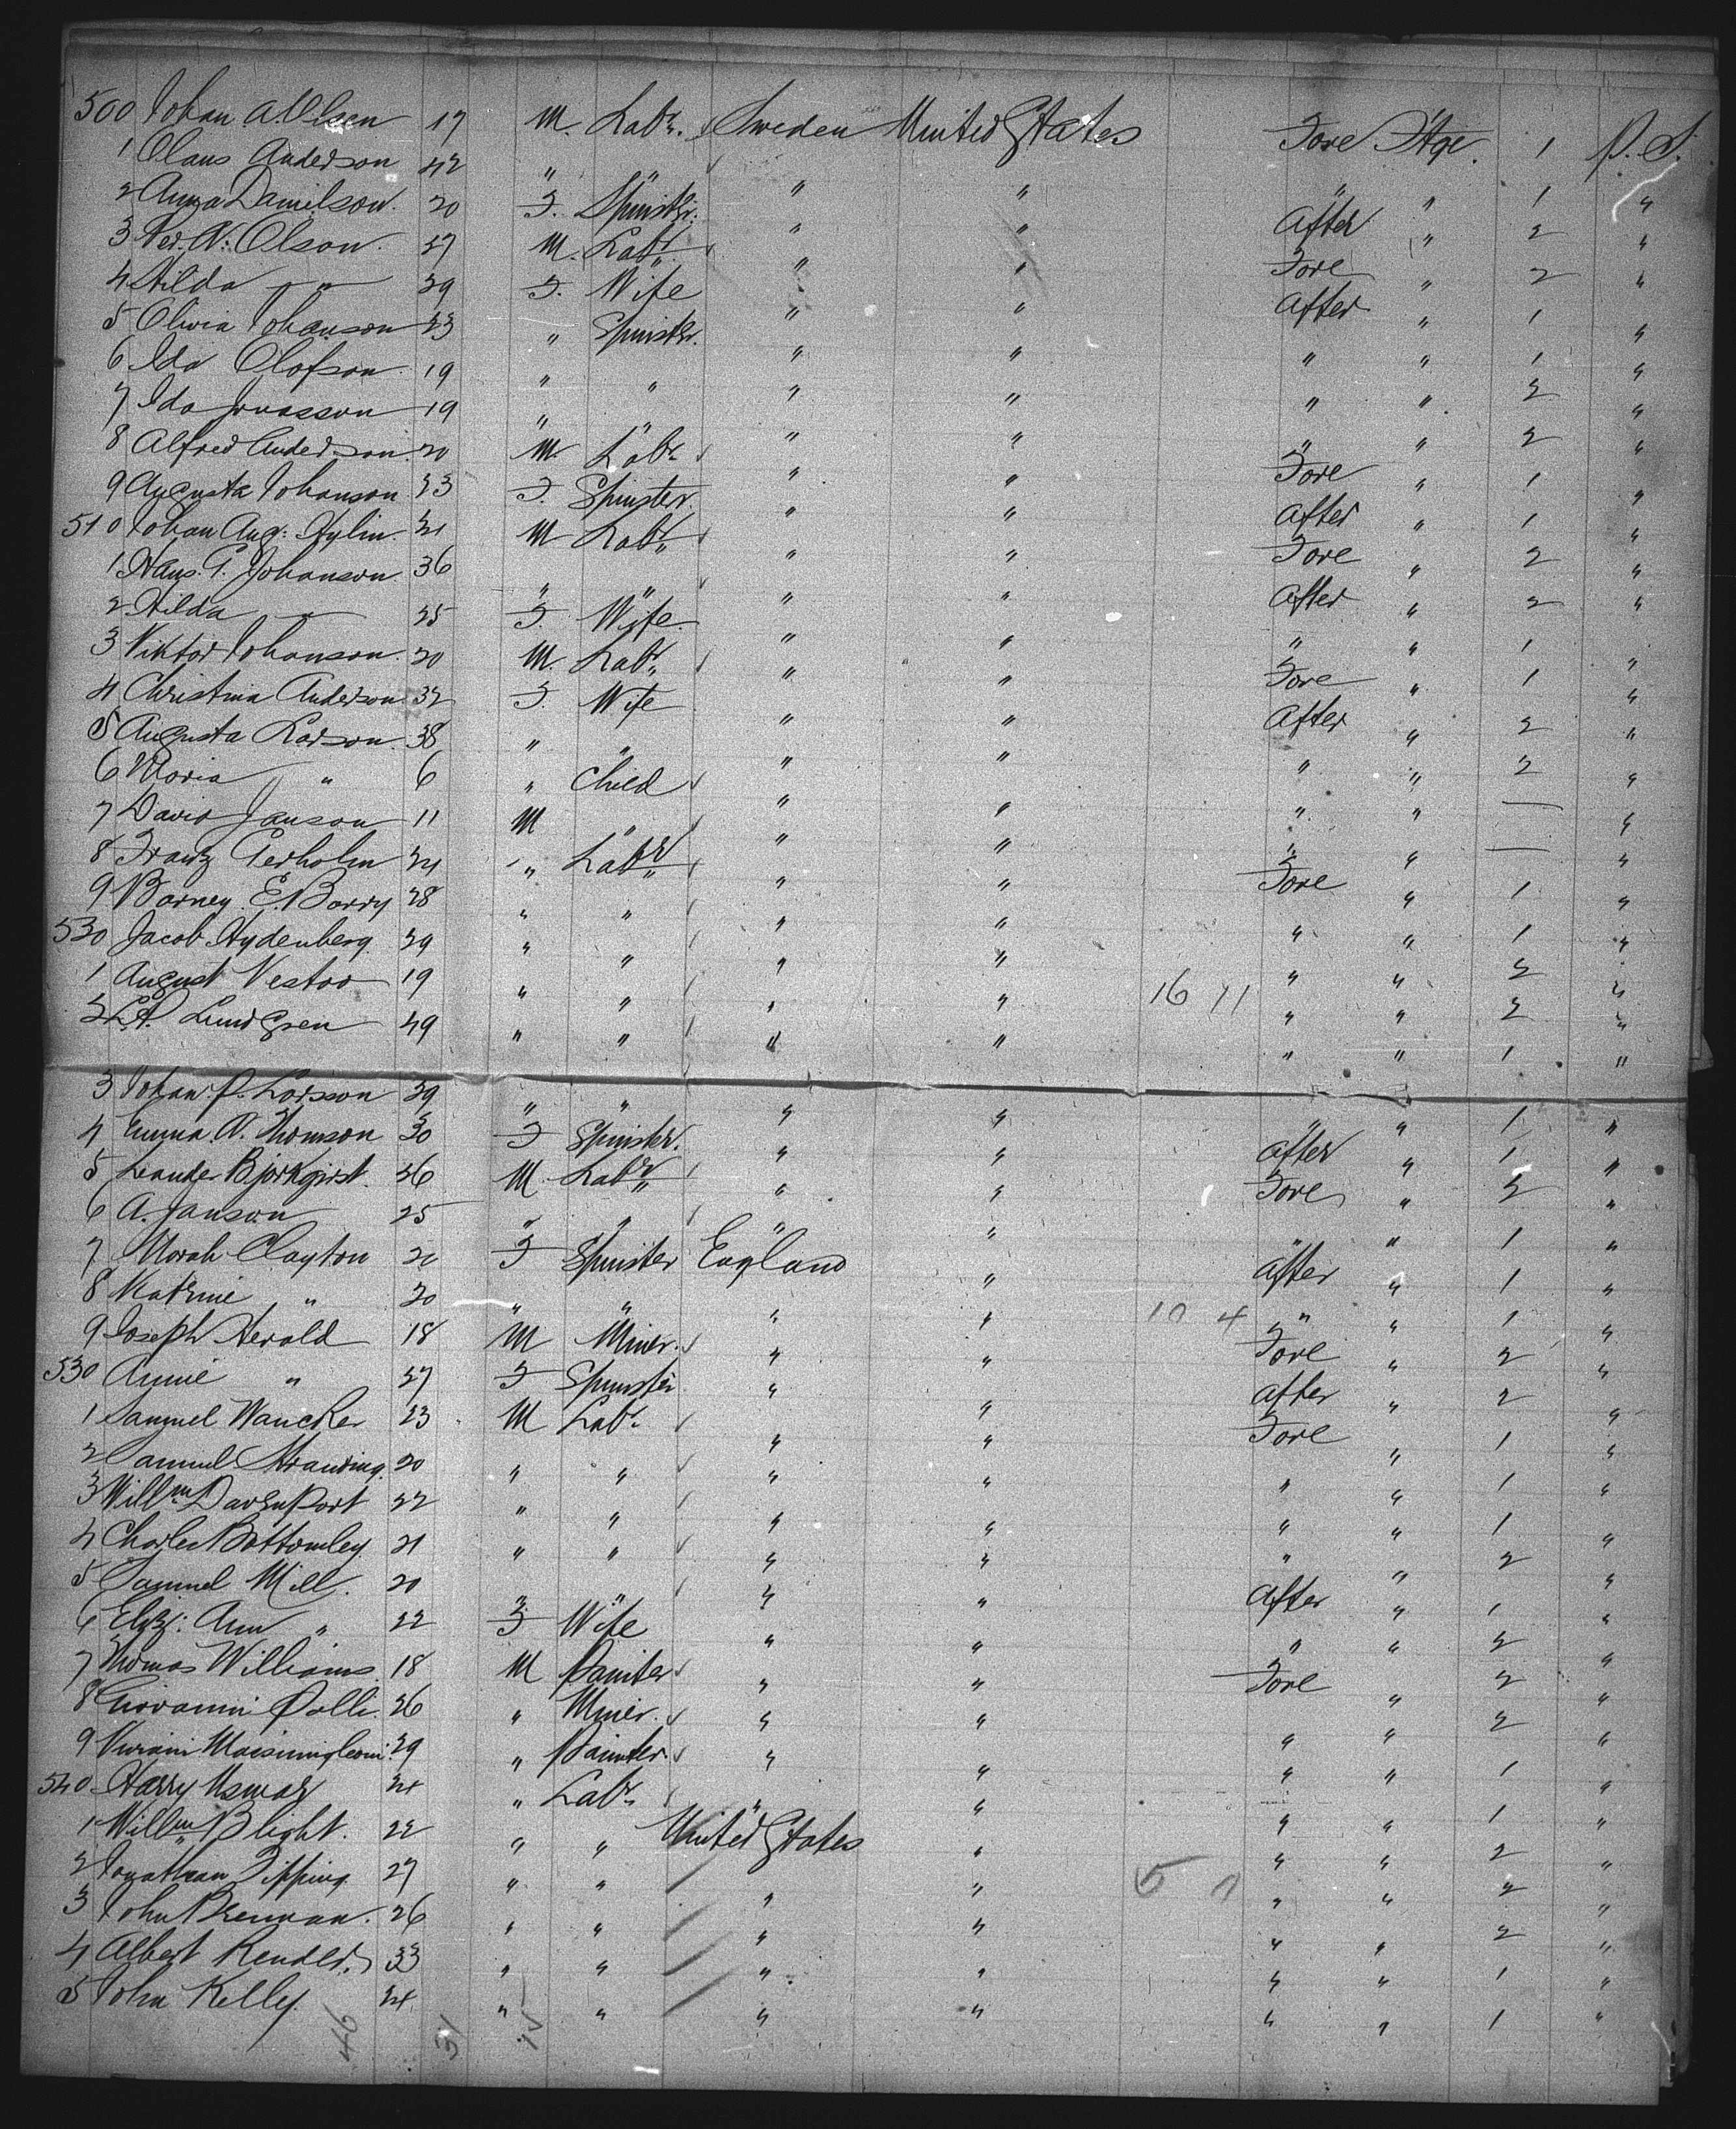 500 Johan Allsen 17 M. Labr. Sweden United States Fore Stge. 1 P. S.
1 Olaus Anderson 42 " " " " " " 1 "
2 Anna Danielson. 20 F. Spinstr. " " After " 2 "
3 N. Olson. 27 M. Labr. " " Fore " 2 "
4 Hilda " 29 F. Wife " " After " 1 "
5 Olivia Johanson 23 " Spinstr. " " " " 1 "
6 Ida Olofson 19 " " " " " " 2 "
7 Ida Jonasson 19 " " " " " " 2 "
8 Alfred Anderson. 20 M. Labr. " " Fore " 1 "
9 Augusta Johanson 23 F. Spinster. " " After " 1 "
510 Johan Aug: Hylin. 21 M Labr. " " Fore " 2 "
1 Hans. Johanson 36 " " " " After " 2 "
2 Hilda " 25 F. Wife. " " " " 1 "
3 Viktor Johanson. 20 M. Labr. " " Fore " 1 "
4 Christina Anderson 32 F. Wife " " After " 2 "
5 Augusta Larson. 38 " " " " " " 2 "
6 Maria " 6 " Child " " " " — "
7 David Janson 11 M " " " " " — "
8 Franz Gerholm 24 " Labr. " " Fore " 1 "
9 Barney E. Barry 28 " " " " " " 1 "
520 Jacob Hydenberg. 29 " " " " " " 2 "
1 August 19 " " " " 16 11 " " 2 "
2 Lundgren 49 " " " " " " 1 "
3 Johan. P. Larsson 39 " " " " " " 1 "
4 Emma. Thomson 30 F Spinstr. " " After " 1 "
5 Leander Bjorkqvist. 26 M Labr. " " Fore " 2 "
6 A. Janson 25 " " " " " " 1 "
7 Norah Clayton 21 F Spinster England " After " 1 "
8 Katrine " 20 " " " " 10 4 " " 1 "
9 Joseph Herald 18 M Miner. " " Fore " 2 "
530 Annie " 27 F Spinster " " After " 2 "
1 Samuel 23 M Labr. " " Fore " 1 "
2 Samuel 20 " " " " " " 1 "
3 Willm Davenport 22 " " " " " " 1 "
4 Charles Bottomley. 21 " " " " " " 2 "
5 Samuel Mill. 20 " " " " After " 1 "
6 Eliz: Ann " 22 F Wife " " " " 2 "
7 Thomas Williams 18 M Painter " " Fore " 2 "
8 Giovanni 26 " Miner. " " " " 2 "
9 29 " Painter. " " " " 1 "
540 Harry 24 " Labr. " " " " 1 "
1 Willm Blight. 22 " " United States " " " 2 "
2 Jonathan Tipping. 27 " " " " 5 0 " " 2 "
3 John Brennan. 26 " " " " " " 2 "
4 Albert 33 " " " " " " 1 "
5 John Kelly. 24 " " " " " " 1 "
46 31 15